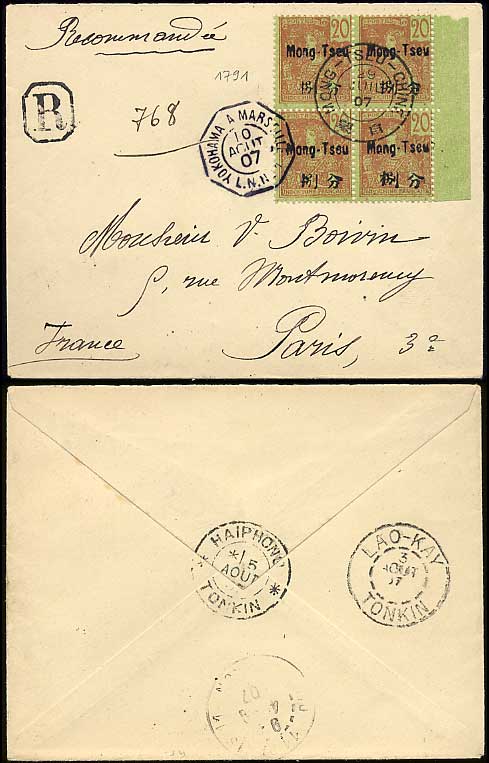 Recommandée
1791
R
768
20 20
Mong-Tseu Mong-Tseu
20 20
Mong-Tseu Mong-Tseu
INDO-CHINE FRANÇAISE
MONG-TSEU-CHINE
29
JUIL
07
YOKOHAMA A MARSEILLE
10
AOUT
07
L.N.
Monsieur V. Boivin
5, rue Montmorency
Paris, 3e
France
HAIPHONG
5
AOUT
TONKIN
LAO-KAY
3
AOUT
07
TONKIN
07